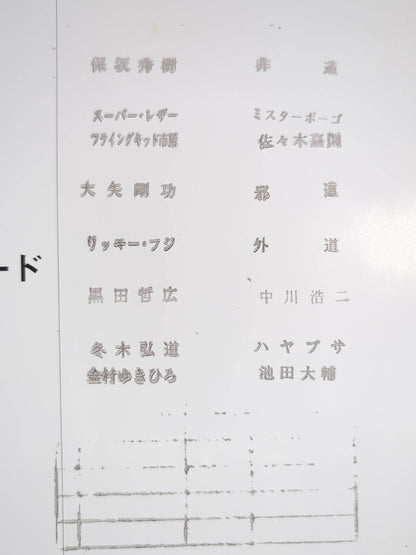 保坂秀樹　非道
スーパー・レザー　ミスターポーゴ
フライングキッド市原　佐々木嘉則
大矢剛功　邪道
ード
リッキー・フジ　外道
黒田哲広　中川浩二
冬木弘道　ハヤブサ
金村ゆきひろ　池田大輔